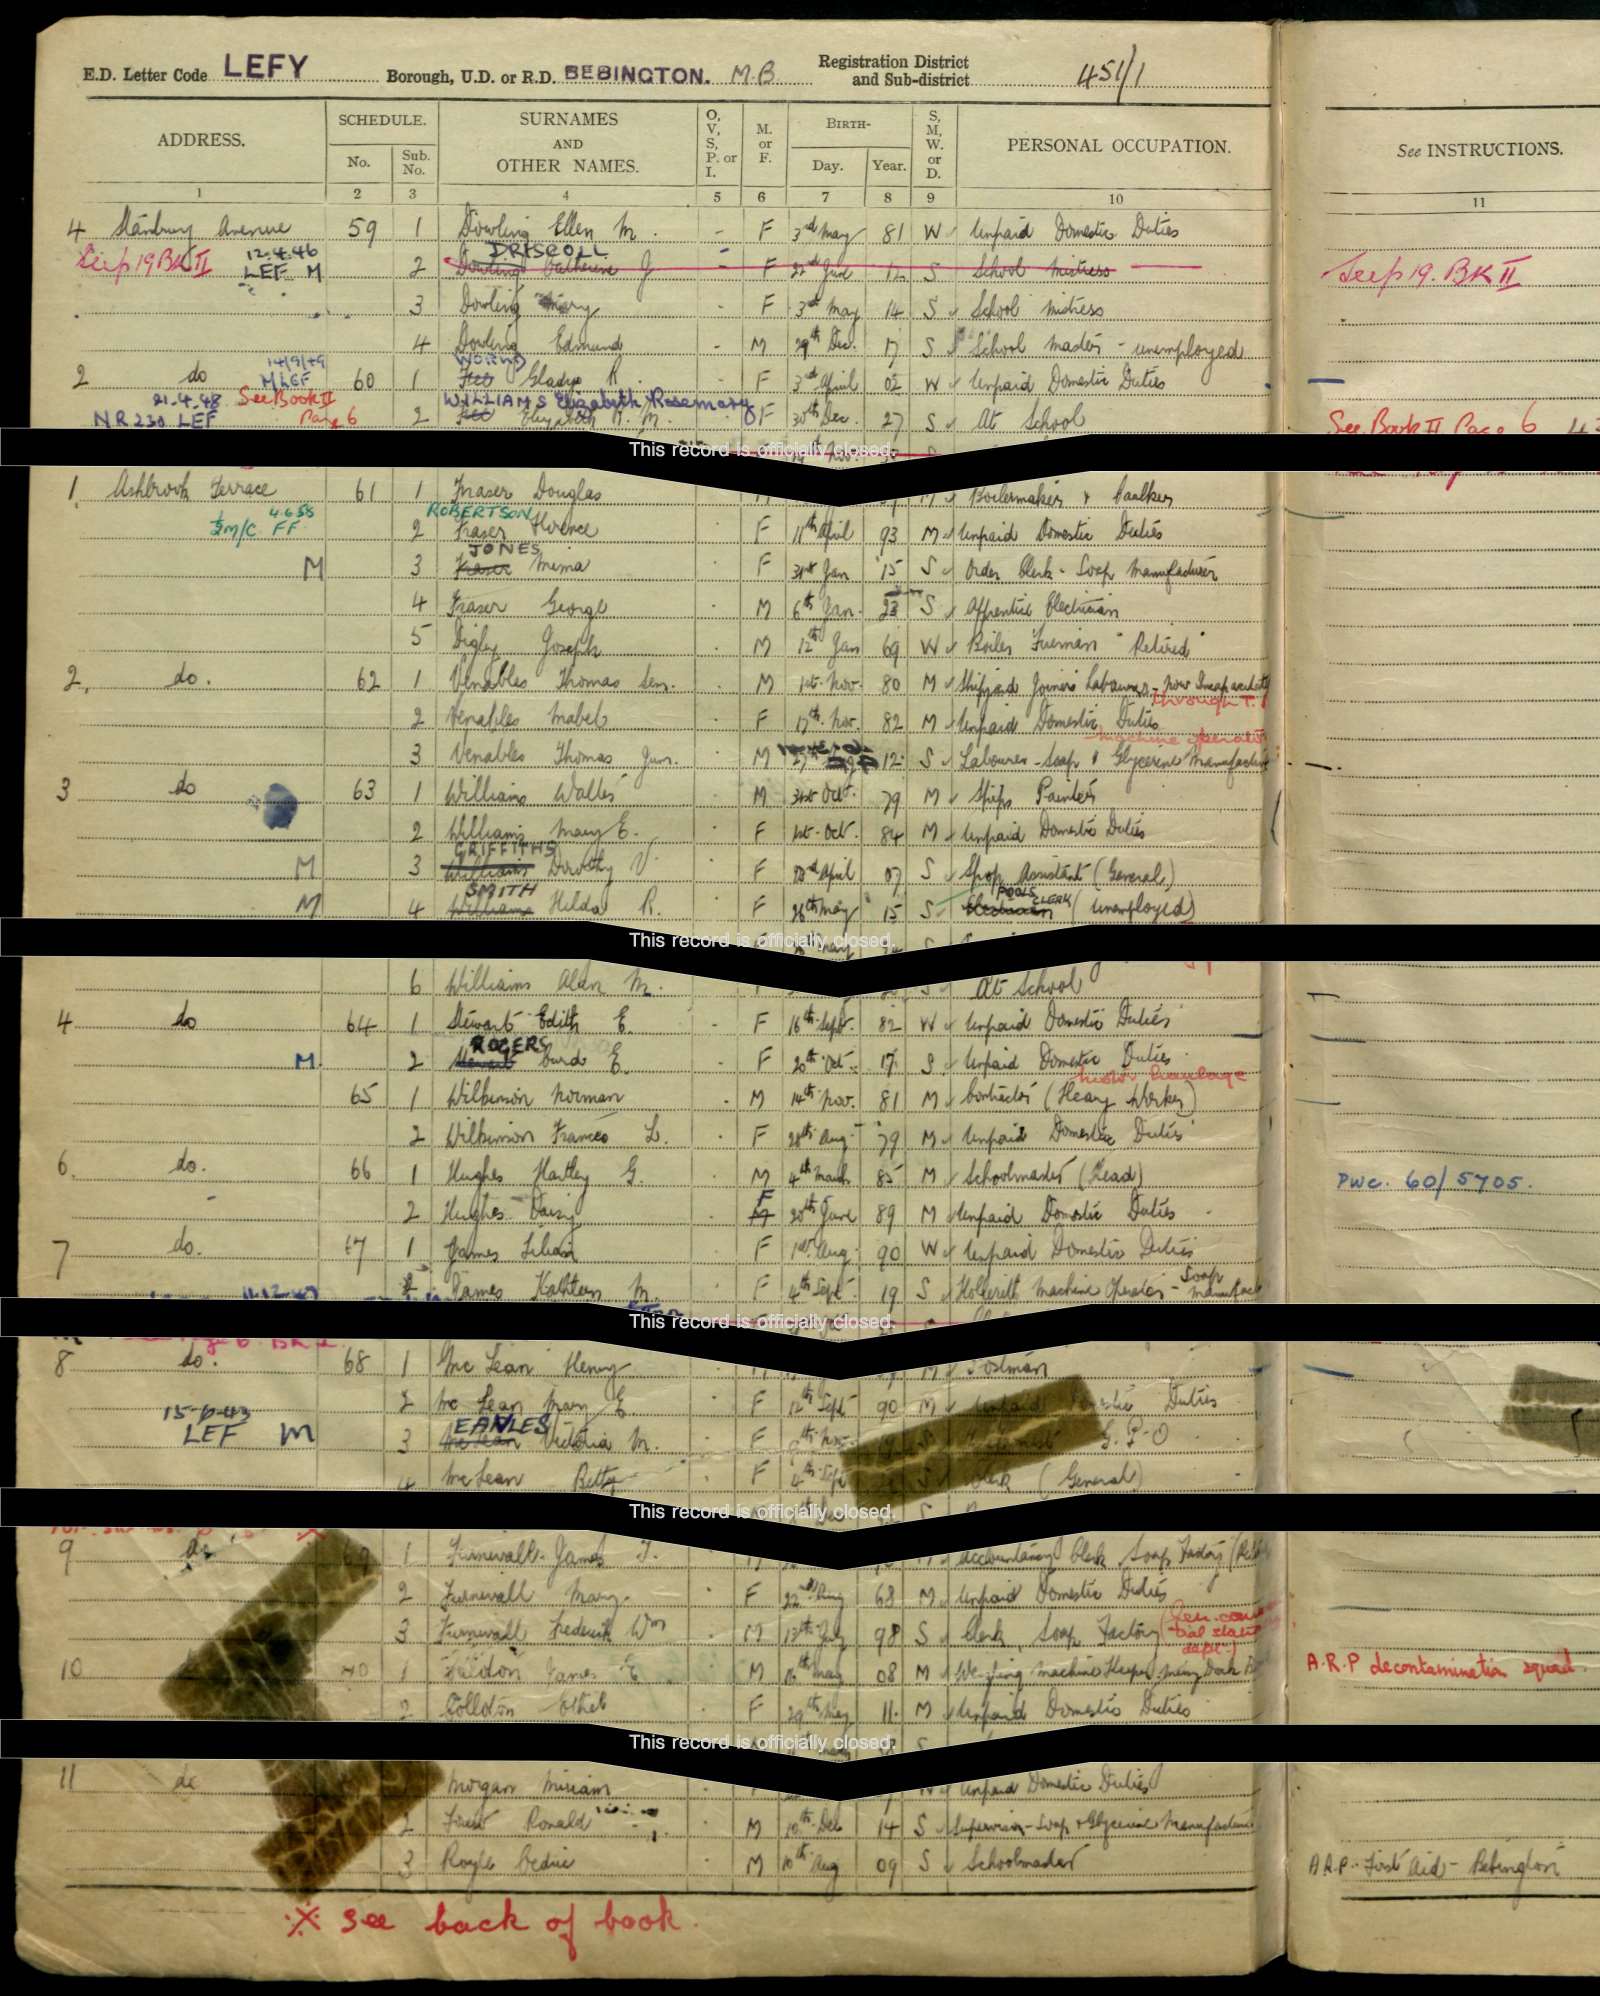 E.D. Letter Code LEFY Borough, U.D. or R.D. BEBINGTON. M.B Registration District and Sub-district 451/1
ADDRESS. SCHEDULE. No. Sub. No. SURNAMES AND OTHER NAMES. O, V, S, P. or I. M. or F. BIRTH- Day. Year. S, M, W. or D. PERSONAL OCCUPATION. See INSTRUCTIONS.
1 2 3 4 5 6 7 8 9 10 11
4 Stanbury Avenue 59 1 Dowling Ellen M. - F 3rd May 81 W Unpaid Domestic Duties
See p 19 BK II 12.4.46 LEF M 2 DRISCOLL Dowling Catherine J - F 22nd June 12 S School Mistress See p 19. BK II
3 Dowling Mary - F 3rd May 14 S School Mistress
4 Dowling Edmund - M 29th Dec. 17 S School Master - unemployed
2 do 14/9/49 M LEF 60 1 Gladys R. F 3rd April 02 W Unpaid Domestic Duties
21.4.48 NR 230 LEF See Book II Page 6 2 WILLIAMS Elizabeth Rosemary Elizabeth R. M. F 30th Dec. 27 S At School See Book II Page 6
This record is officially closed.
1 Ashbrook Terrace 61 1 Fraser Douglas M Boilermaker & Caulker
M/C FF 2 ROBERTSON Fraser Florence F 11th April 93 M Unpaid Domestic Duties
M 3 JONES Fraser Mima F 31st Jan 15 S Order Clerk - Soap Manufacturer
4 Fraser George M 6th Jan. 23 S Apprentice Electrician
5 Digley Joseph M 12th Jan 69 W Boiler Fireman "Retired"
2. do. 62 1 Venables Thomas Sen. M 1st Nov. 80 M Shipyard Joiners Labourer - now Incapacitated through T.
2 Venables Mabel F 17th Nov. 82 M Unpaid Domestic Duties
3 Venables Thomas Jun. M 27th 12 S Labourer - Soap & Glycerine Manufacture machine operator
3 do 63 1 Williams Walter M 31st Oct. 79 M Ships Painter
2 Williams Mary E. F 1st Oct. 84 M Unpaid Domestic Duties
M 3 GRIFFITHS Williams Dorothy V. F April 07 S Shop Assistant (General)
M 4 SMITH Williams Hilda R. F 28th May 15 S POOLS CLERK (unemployed)
This record is officially closed.
6 Williams Alan M. S At School
4 do 64 1 Stewart Edith E. F 16th Sept. 82 W Unpaid Domestic Duties
M. 2 ROGERS Stewart E. F 20th Oct. 17 S Unpaid Domestic Duties
65 1 Wilkinson Norman M 14th Nov. 81 M Contractor (Heavy Worker) motor haulage
2 Wilkinson Frances L. F 28th Aug 79 M Unpaid Domestic Duties
6. do. 66 1 Hughes Hartley G. M 4th March 85 M Schoolmaster (Head) PWC. 60/5705.
2 Hughes Daisy F 20th June 89 M Unpaid Domestic Duties
7 do. 67 1 James Lilian F 1st Aug 90 W Unpaid Domestic Duties
2 James Kathleen M. F 4th Sept 19 S Hollerith Machine Operator - Soap Manufact
This record is officially closed.
8 do. 68 1 Mc Lean Henry M Postman
2 Mc Lean Mary E. F 12th Sept 90 M Unpaid Domestic Duties
LEF M 3 Mc Lean Victoria M. F G.P.O
4 Mc Lean Betty F 4th Sept S Clerk (General)
This record is officially closed.
9 do 69 1 Furnevall James T. Accountancy Clerk Soap Factory
2 Furnevall Mary. F 22nd Aug 68 M Unpaid Domestic Duties
3 Furnevall Frederick Wm M 13th July 98 S Clerk, Soap Factory
10 70 1 James E. M 16th May 08 M Weighing Machine Keeper A.R.P decontamination squad.
2 Ethel F 29th May 11 M Unpaid Domestic Duties
This record is officially closed.
11 do Morgan Miriam Unpaid Domestic Duties
2 Ronald M 10th Feb 14 S Supervisor - Soap & Glycerine Manufacture
3 Royle Cedric M 10th Aug 09 S Schoolmaster A.R.P. First Aid - Bebington
※ see back of book.